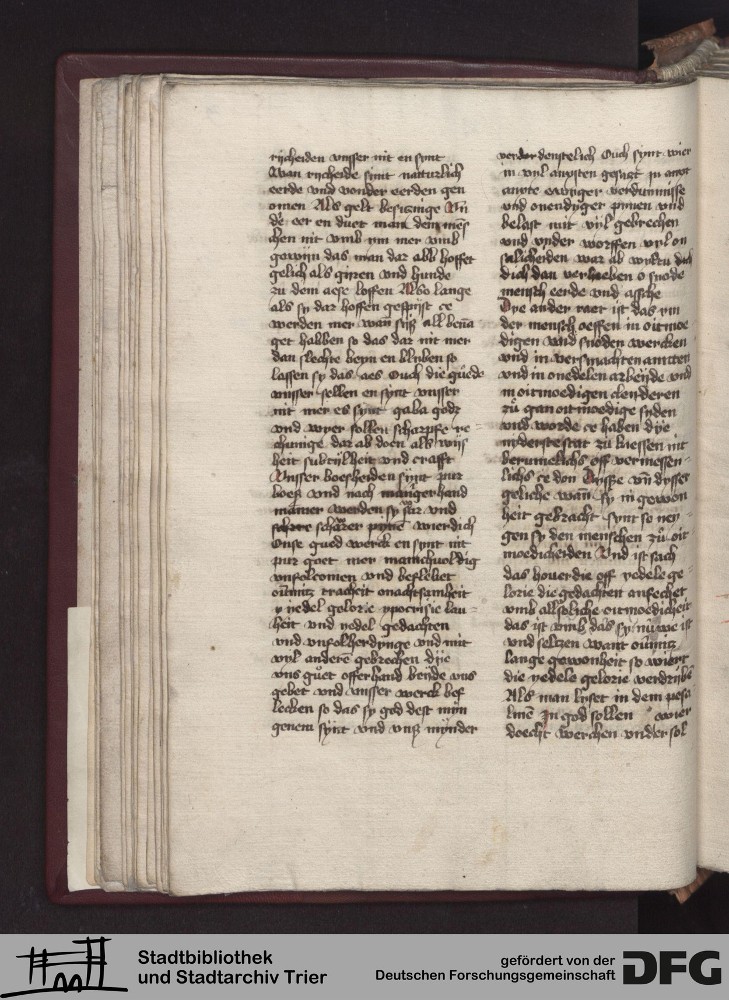 rijcheiden vnsser nit en synt
Wan rijcheide synt natturlich
eerde vnd vonder eerden gen
omen Als gelt besitzinge Vn̄
de eer en duet man dem mēs
chen nit vmb ym mer vmb
gewijn das man dar abb hoffet
gelich als giren vnd hunde
zu dem aese loffen Also lange
als sy dar hoffen gespijst ce
werden mer wan̄ sijß all
get habben so das dar nit mer
dan slechte beyn en blyben so
lassen sy das aes Ouch die gůede
vnsser sellen en synt vnsser
nit mer es synt gaba godz
vnd wyer sollen scharpfe re
chunige dar ab doen als wijs
heit subtijlheit vnd crafft
Vnsser boesheiden synt pur
boeß vnd nach manigerhand
manier werden sy sur vnd
scharer pynē wierdich
Onse gued werck en synt nit
pur goet mer manichuoldig
vnfolcomen vnd beflecket
oůmitz tracheit onachtsamheit
y nedel gelorie ypocrisie lau
heit vnd yedel gedachten
vnd vnfolherdynge vnd mit
vyl anderē gebrechen dye
vns gůet offerhand beyde vns
gebet vnd vnsser werck bef
lecken so das sy god dest myn
genem synt vnd vnß mynder
verdordenstelich Ouch synt wier
in vyl anxsten gesatzt in anxt
anxte ewyger verdumnisse
vnd onendyger pynen vnd
belast mit vyl gebrechen
vnd vnder worffen vyl on
salicheiden war ab wyltu dich
dich dan verheeben o snode
mensch eerde vnd assche
Dye ander raet ist das ym
der mensch oeffen in oitmoe
digen vnd snoden wercken
vnd in versmachten ampten
vnd in onedelen arbeyde vnd
in oitmoedigen clenderen
zů gan oitmoedige syden
vnd worde ce haben dye
nyderstestat zu kiessen nit
berumelichs off vermessen
lichs ce don Dysße vn̄ dysser
geliche wan̄ sy in gewon
heit gebracht synt so ney
gen sy den menschen zů oit
moedicheiden Vnd ist sach
das houerdie off yedele ge
lorie die gedachten anfechet
vmb allsoliche oitmoedicheit
das ist vmb das sy nuwe ist
vnd seltzen want oůmitz
lange gewonheit so wiert
die yedele gelorie verdrybē
Als man lyset in dem psal
Jn god sollen wier
doecht werchen vnd er sol
Stadtbibliothek
und Stadtarchiv Trier
gefördert von der
Deutschen Forschungsgemeinschaft
DFG